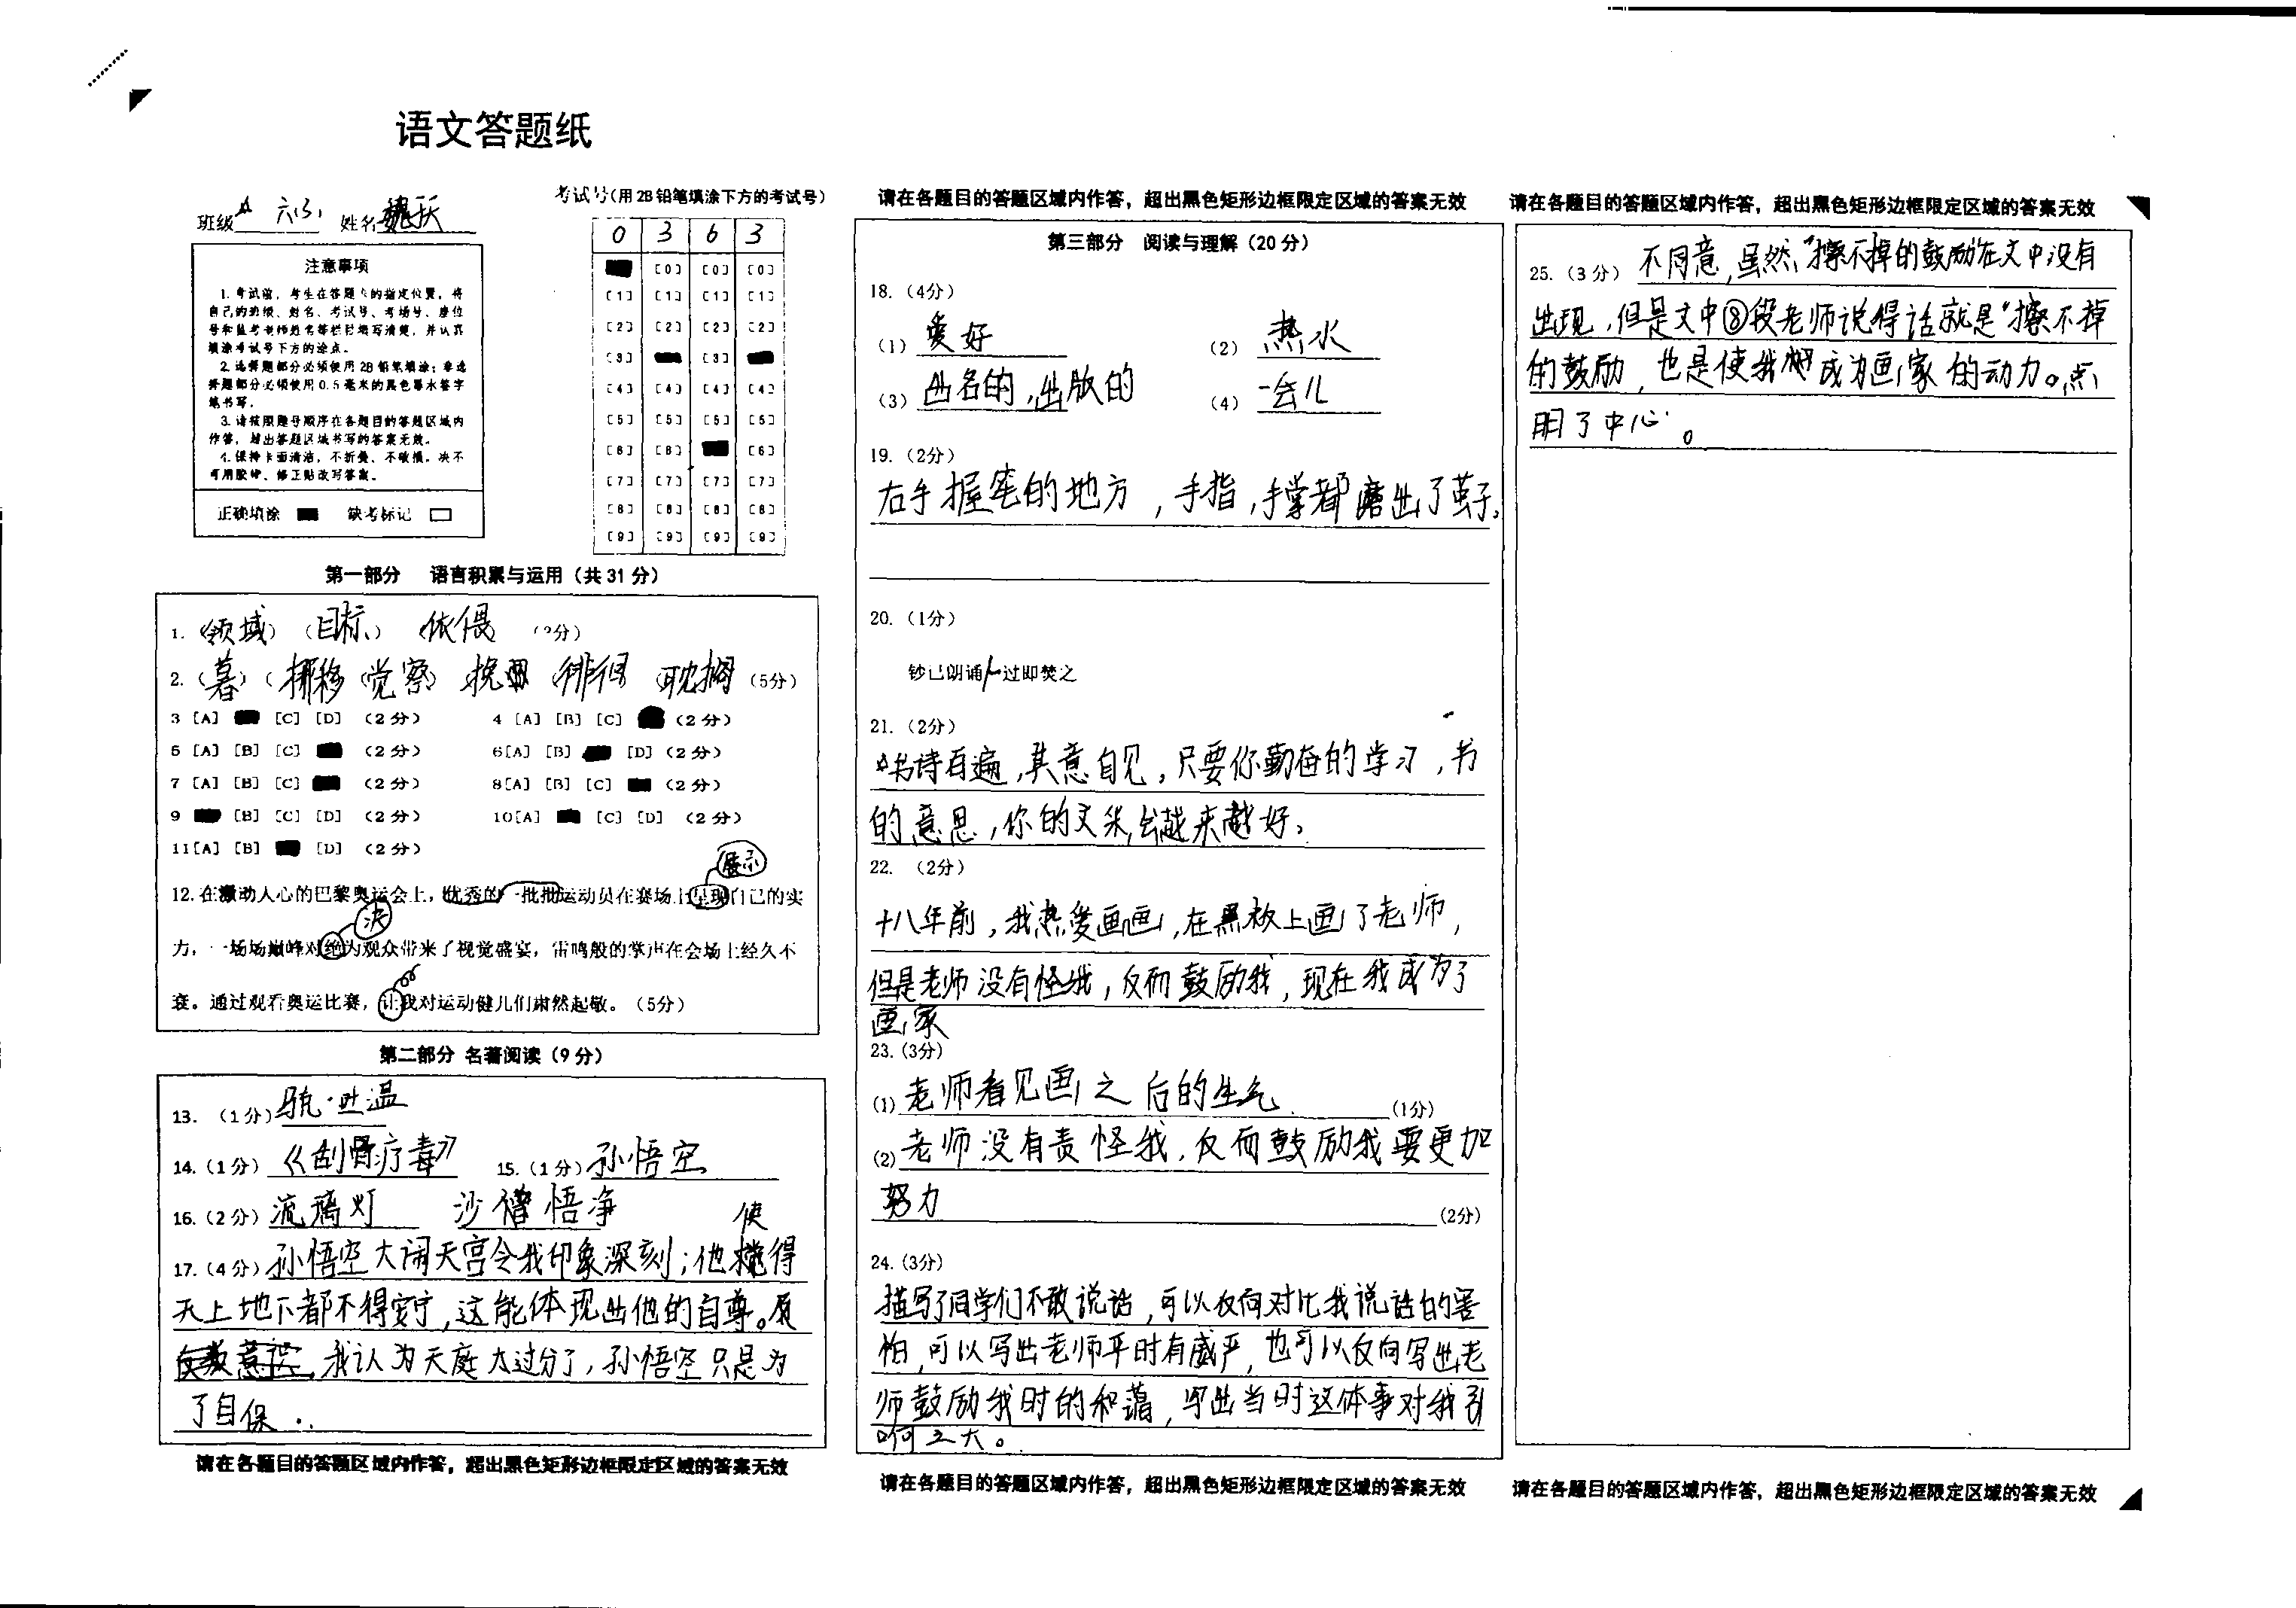 语文答题纸
班级 六(3) 姓名 魏跃
考试号(用2B铅笔填涂下方的考试号)
0 3 6 3
[0] [0] [0]
[1] [1] [1] [1]
[2] [2] [2] [2]
[3] [3]
[4] [4] [4] [4]
[5] [5] [5] [5]
[6] [6] [6]
[7] [7] [7] [7]
[8] [8] [8] [8]
[9] [9] [9] [9]
注意事项
1.考试前,考生在答题卡的指定位置,将
自己的班级、姓名、考试号、考场号、座位
号和监考老师姓名等栏目填写清楚,并认真
填涂考试号下方的涂点。
2.选择题部分必须使用2B铅笔填涂;非选
择题部分必须使用0.5毫米的黑色墨水签字
笔书写。
3.请按照题号顺序在各题目的答题区域内
作答,超出答题区域书写的答案无效。
4.保持卡面清洁,不折叠、不破损。决不
可用胶带、修正贴改写答案。
正确填涂 缺考标记
第一部分 语言积累与运用(共31分)
1. (领域) (目标) (依偎) (3分)
2. (暮) (挪移) (觉察) 挽 (徘徊) (耽搁) (5分)
3 [A] [C] [D] (2分) 4 [A] [B] [C] (2分)
5 [A] [B] [C] (2分) 6[A] [B] [D] (2分)
7 [A] [B] [C] (2分) 8[A] [B] [C] (2分)
9 [B] [C] [D] (2分) 10[A] [C] [D] (2分)
11[A] [B] [D] (2分)
展示
12.在激动人心的巴黎奥运会上,优秀的一批批运动员在赛场上呈现自己的实
决
力,一场场巅峰对绝为观众带来了视觉盛宴,雷鸣般的掌声在会场上经久不
衰。通过观看奥运比赛,让我对运动健儿们肃然起敬。(5分)
第二部分 名著阅读(9分)
13. (1分) 马克·吐温
14.(1分) 《刮骨疗毒》 15.(1分) 孙悟空
16.(2分) 流璃灯 沙僧悟净
使
17.(4分) 孙悟空大闹天宫令我印象深刻;他 得
天上地下都不得安宁,这能体现出他的自尊。反
我认为天庭太过分了,孙悟空只是为
了自保..
请在各题目的答题区域内作答,超出黑色矩形边框限定区域的答案无效
请在各题目的答题区域内作答,超出黑色矩形边框限定区域的答案无效
第三部分 阅读与理解(20分)
18.(4分)
(1) 爱好 (2) 热水
(3) 出名的,出版的 (4) 一会儿
19.(2分)
右手握笔的地方,手指,手掌都磨出了茧子。
20.(1分)
钞已朗诵/一过即焚之
21.(2分)
书诗百遍,其意自见,只要你勤奋的学习,书
的意思,你的文采,会越来越好。
22. (2分)
十八年前,我热爱画画,在黑板上画了老师,
但是老师没有怪我,反而鼓励我,现在我成为了
画家
23.(3分)
(1) 老师看见画之后的生气. (1分)
(2) 老师没有责怪我,反而鼓励我要更加
努力 (2分)
24.(3分)
描写了同学们不敢说话,可以反向对比我说话的害
怕,可以写出老师平时有威严,也可以反向写出老
师鼓励我时的和蔼,写出当时这件事对我影
响之大。
请在各题目的答题区域内作答,超出黑色矩形边框限定区域的答案无效
请在各题目的答题区域内作答,超出黑色矩形边框限定区域的答案无效
25.(3分) 不同意,虽然,"擦不掉的鼓励"在文中没有
出现,但是文中⑧段老师说得话就是"擦不掉
的鼓励,也是使我 成为画家的动力。点
明了中心。
请在各题目的答题区域内作答,超出黑色矩形边框限定区域的答案无效